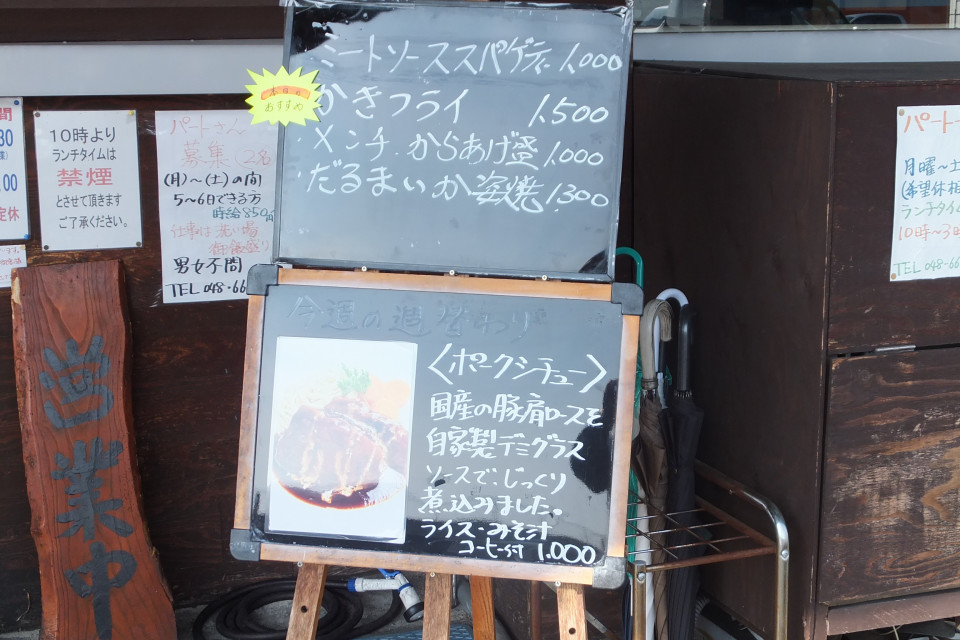 ミートソーススパゲティ 1,000
本日の
おすすめ
かきフライ 1,500
メンチ.からあげ盛 1,000
だるまいか姿焼 1,300
今週の週替わり
〈ポークシチュー〉
国産の豚肩ロースを
自家製デミグラス
ソースで、じっくり
煮込みました。
ライス・みそ汁
コーヒー付 1,000
10時より
ランチタイムは
禁煙
とさせて頂きます
ご了承ください。
パートさん
募集(2名
(月)〜(土)の間
5〜6日できる方
時給850
仕事は洗い場
男女不問
TEL 048-66
営業中
間
30
00
定休
パート
月曜〜土
(希望休相
ランチタイム
10時〜3時
TEL 048-66